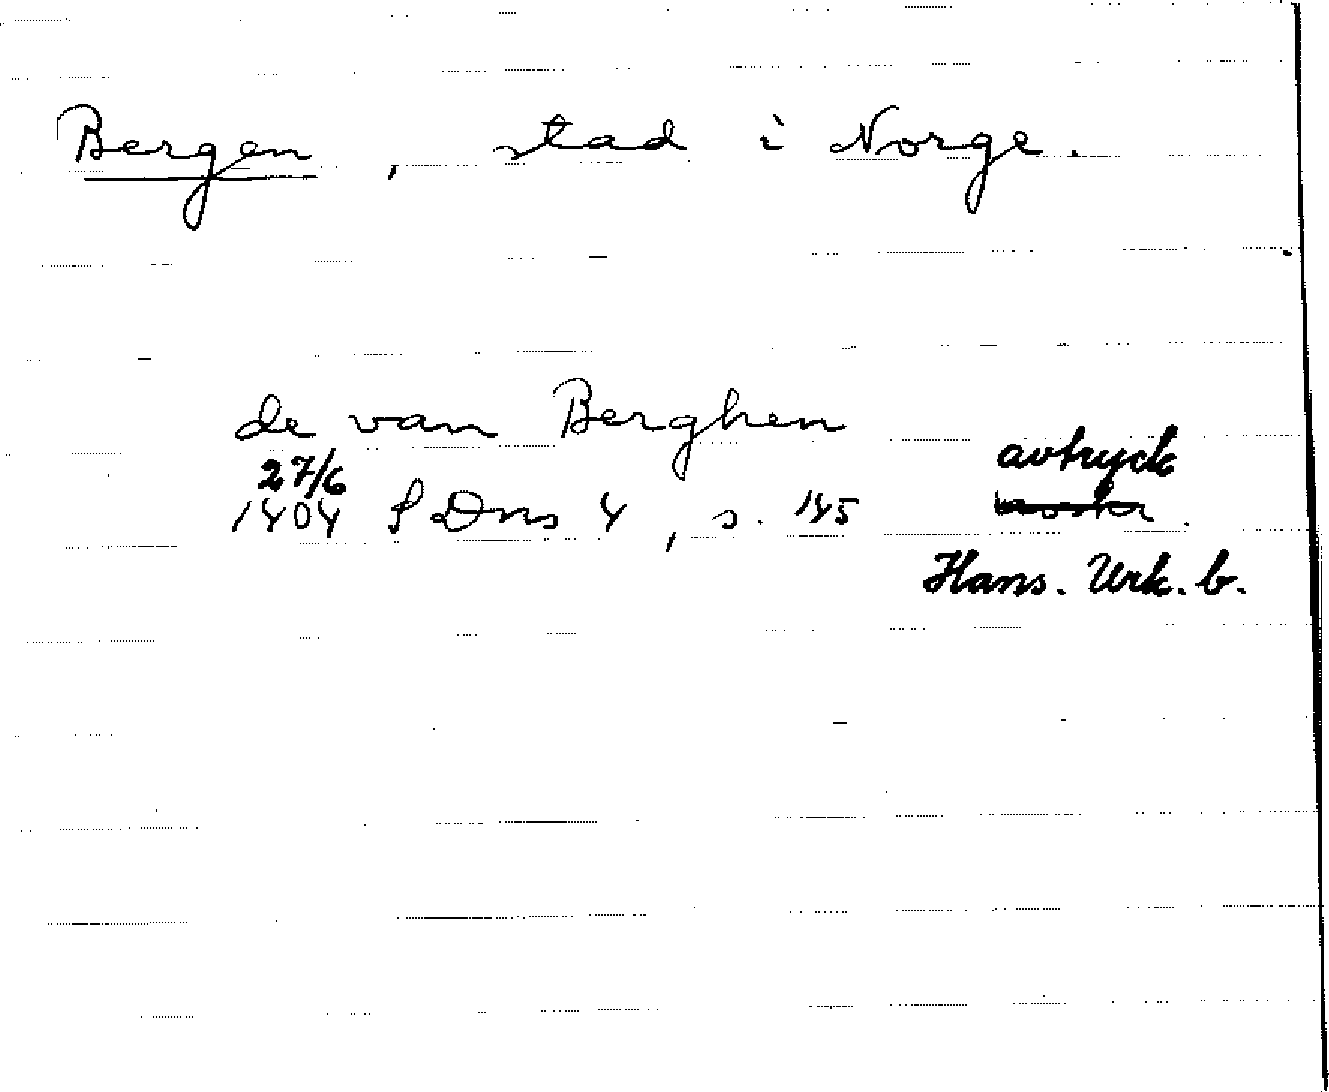 Bergen, stad i Norge.
de van Berghen
27/6
1404 SDns 4, s. 145 avtryck
Hans. Urk. b.